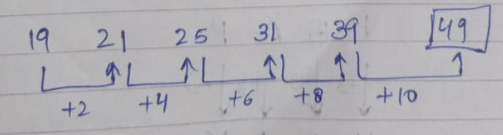 19 21 25 31 39 49
+2 +4 +6 +8 +10